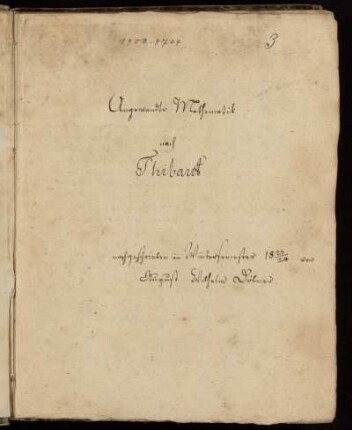 3
Angewandte Mathematik
nach
Thibaut
nachgeschrieben im Wintersemester 18 23/24 von
August Wilhelm